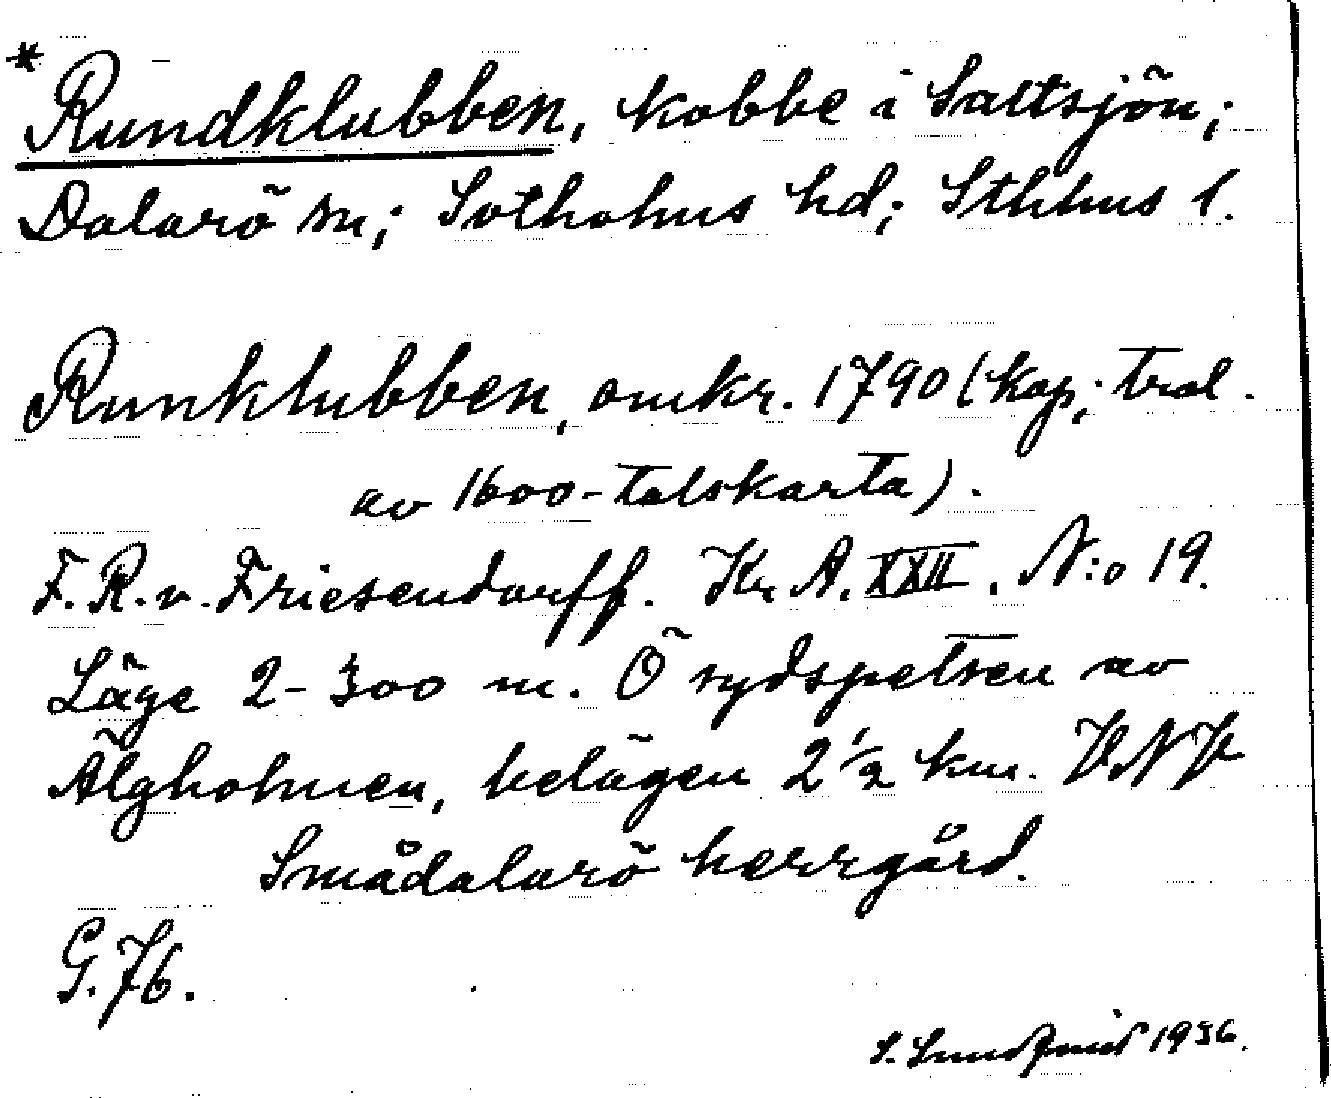 * Rundklubben, kobbe i Saltsjön;
Dalarö sn; Sotholms hd; Sthlms l.
Runklubben, omkr. 1790 (kop. tral.
av 1600-talskarta).
F. R. v. Friesendorff. Kr. A. XXII. N:o 19.
Läge 2-300 m. Ö sydspetsen av
Älgholmen, belägen 2 1/2 km. VNV
Smådalarö herrgård.
G. 76.
S. 1936.